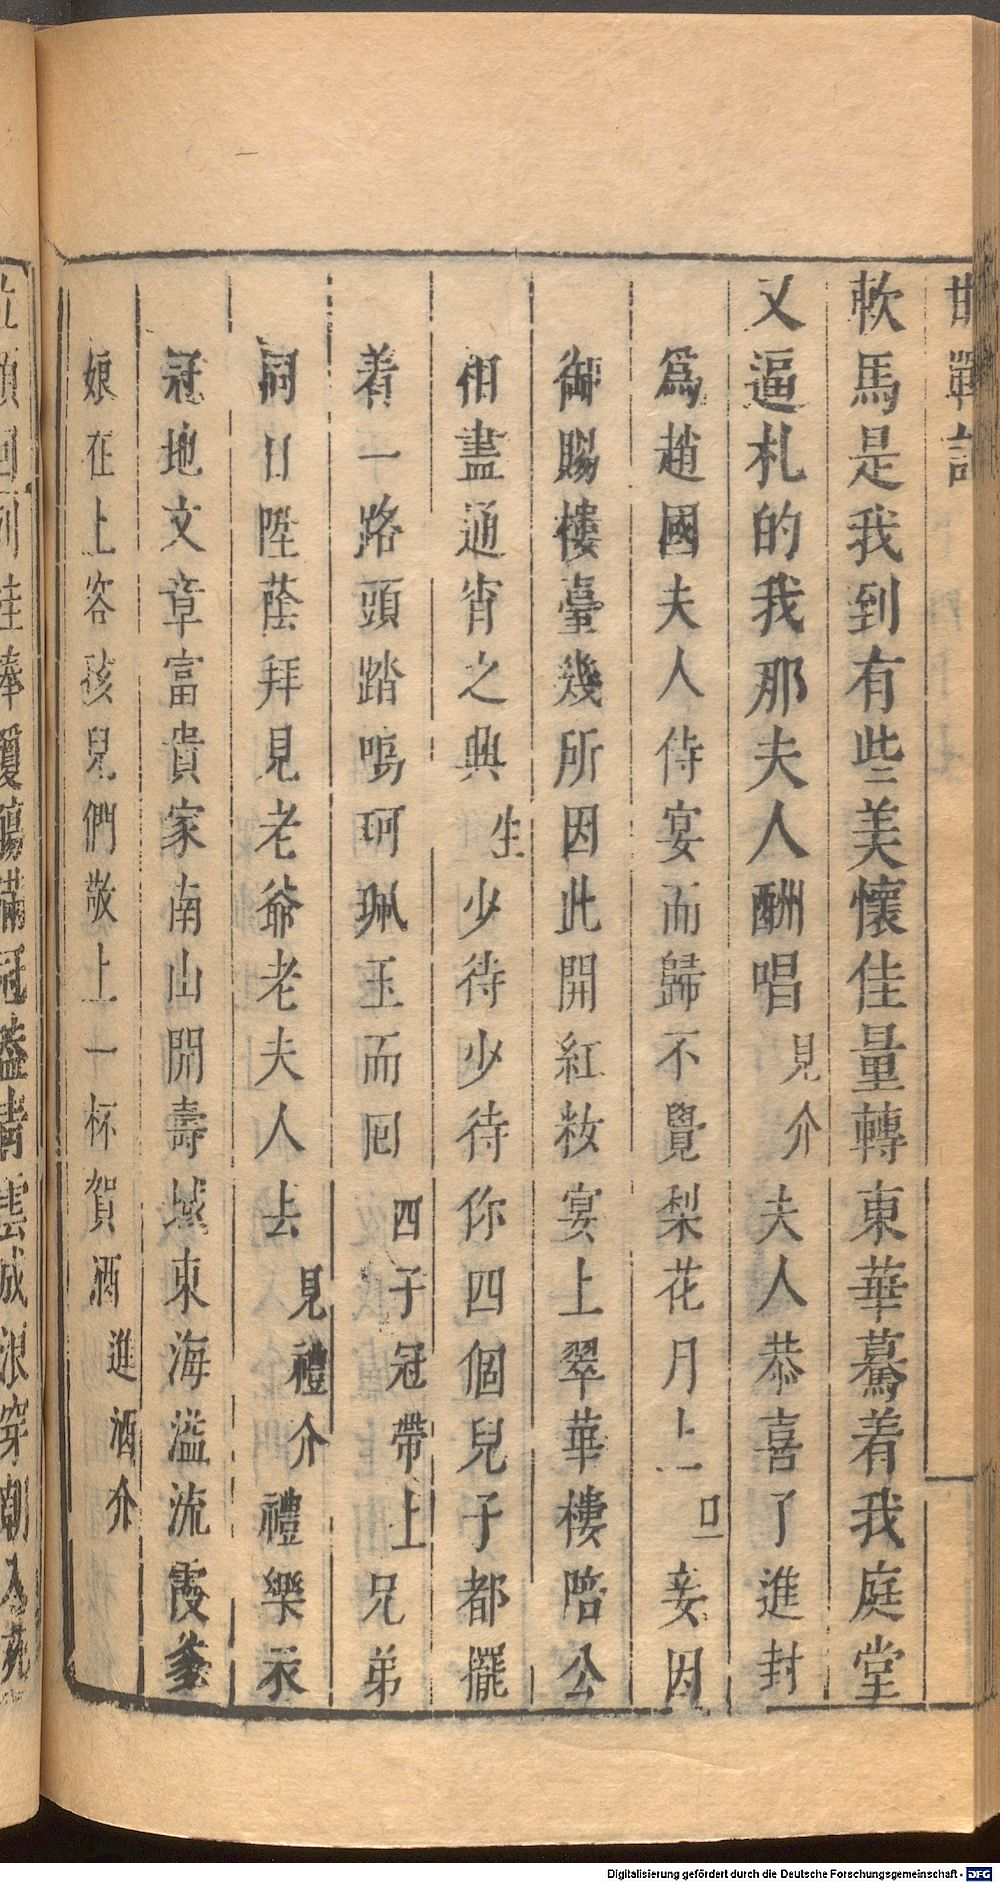 邯鄲記
軟馬是我到有些美懷佳量轉東華驀着我庭堂
又逼札的我那夫人酬唱 見介 夫人恭喜了進封
爲趙國夫人侍宴而歸不覺梨花月上 旦 妾因
御賜樓臺幾所因此開紅妝宴上翠華樓陪公
相盡通宵之興 生 少待少待你四個兒子都擺
着一路頭踏鳴珂珮玉而囘 四子冠帶上 兄弟
同日陞蔭拜見老爺老夫人去 見禮介 禮樂衣
冠地文章富貴家南山開壽域東海溢流霞爹
娘在上容孩兒們敬上一杯賀酒 進酒介
Digitalisierung gefördert durch die Deutsche Forschungsgemeinschaft - DFG